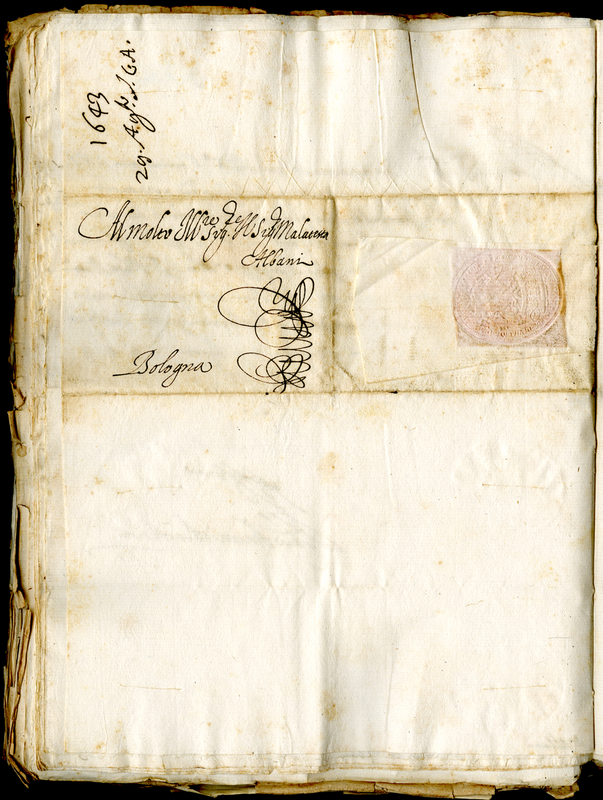 1643
29. Ag.to
Al molto Ill.re Sig.re Il Sig.r Malatesta
Albani
Bologna